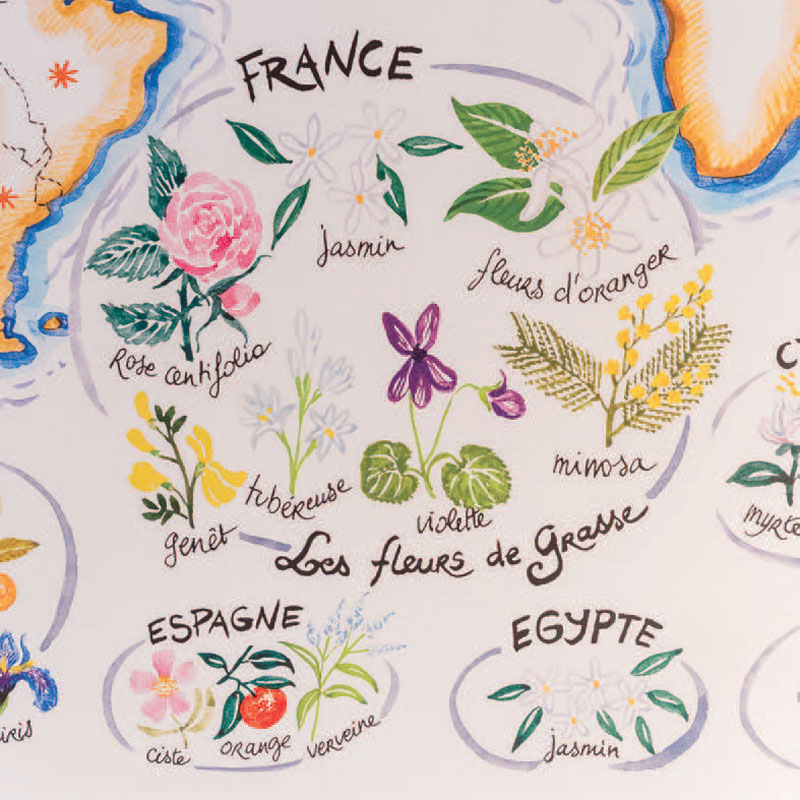 FRANCE
jasmin
fleurs d'oranger
Rose centifolia
tubéreuse
violette
mimosa
genêt
Les fleurs de Grasse
myrte
iris
ESPAGNE
ciste
orange
verveine
EGYPTE
jasmin